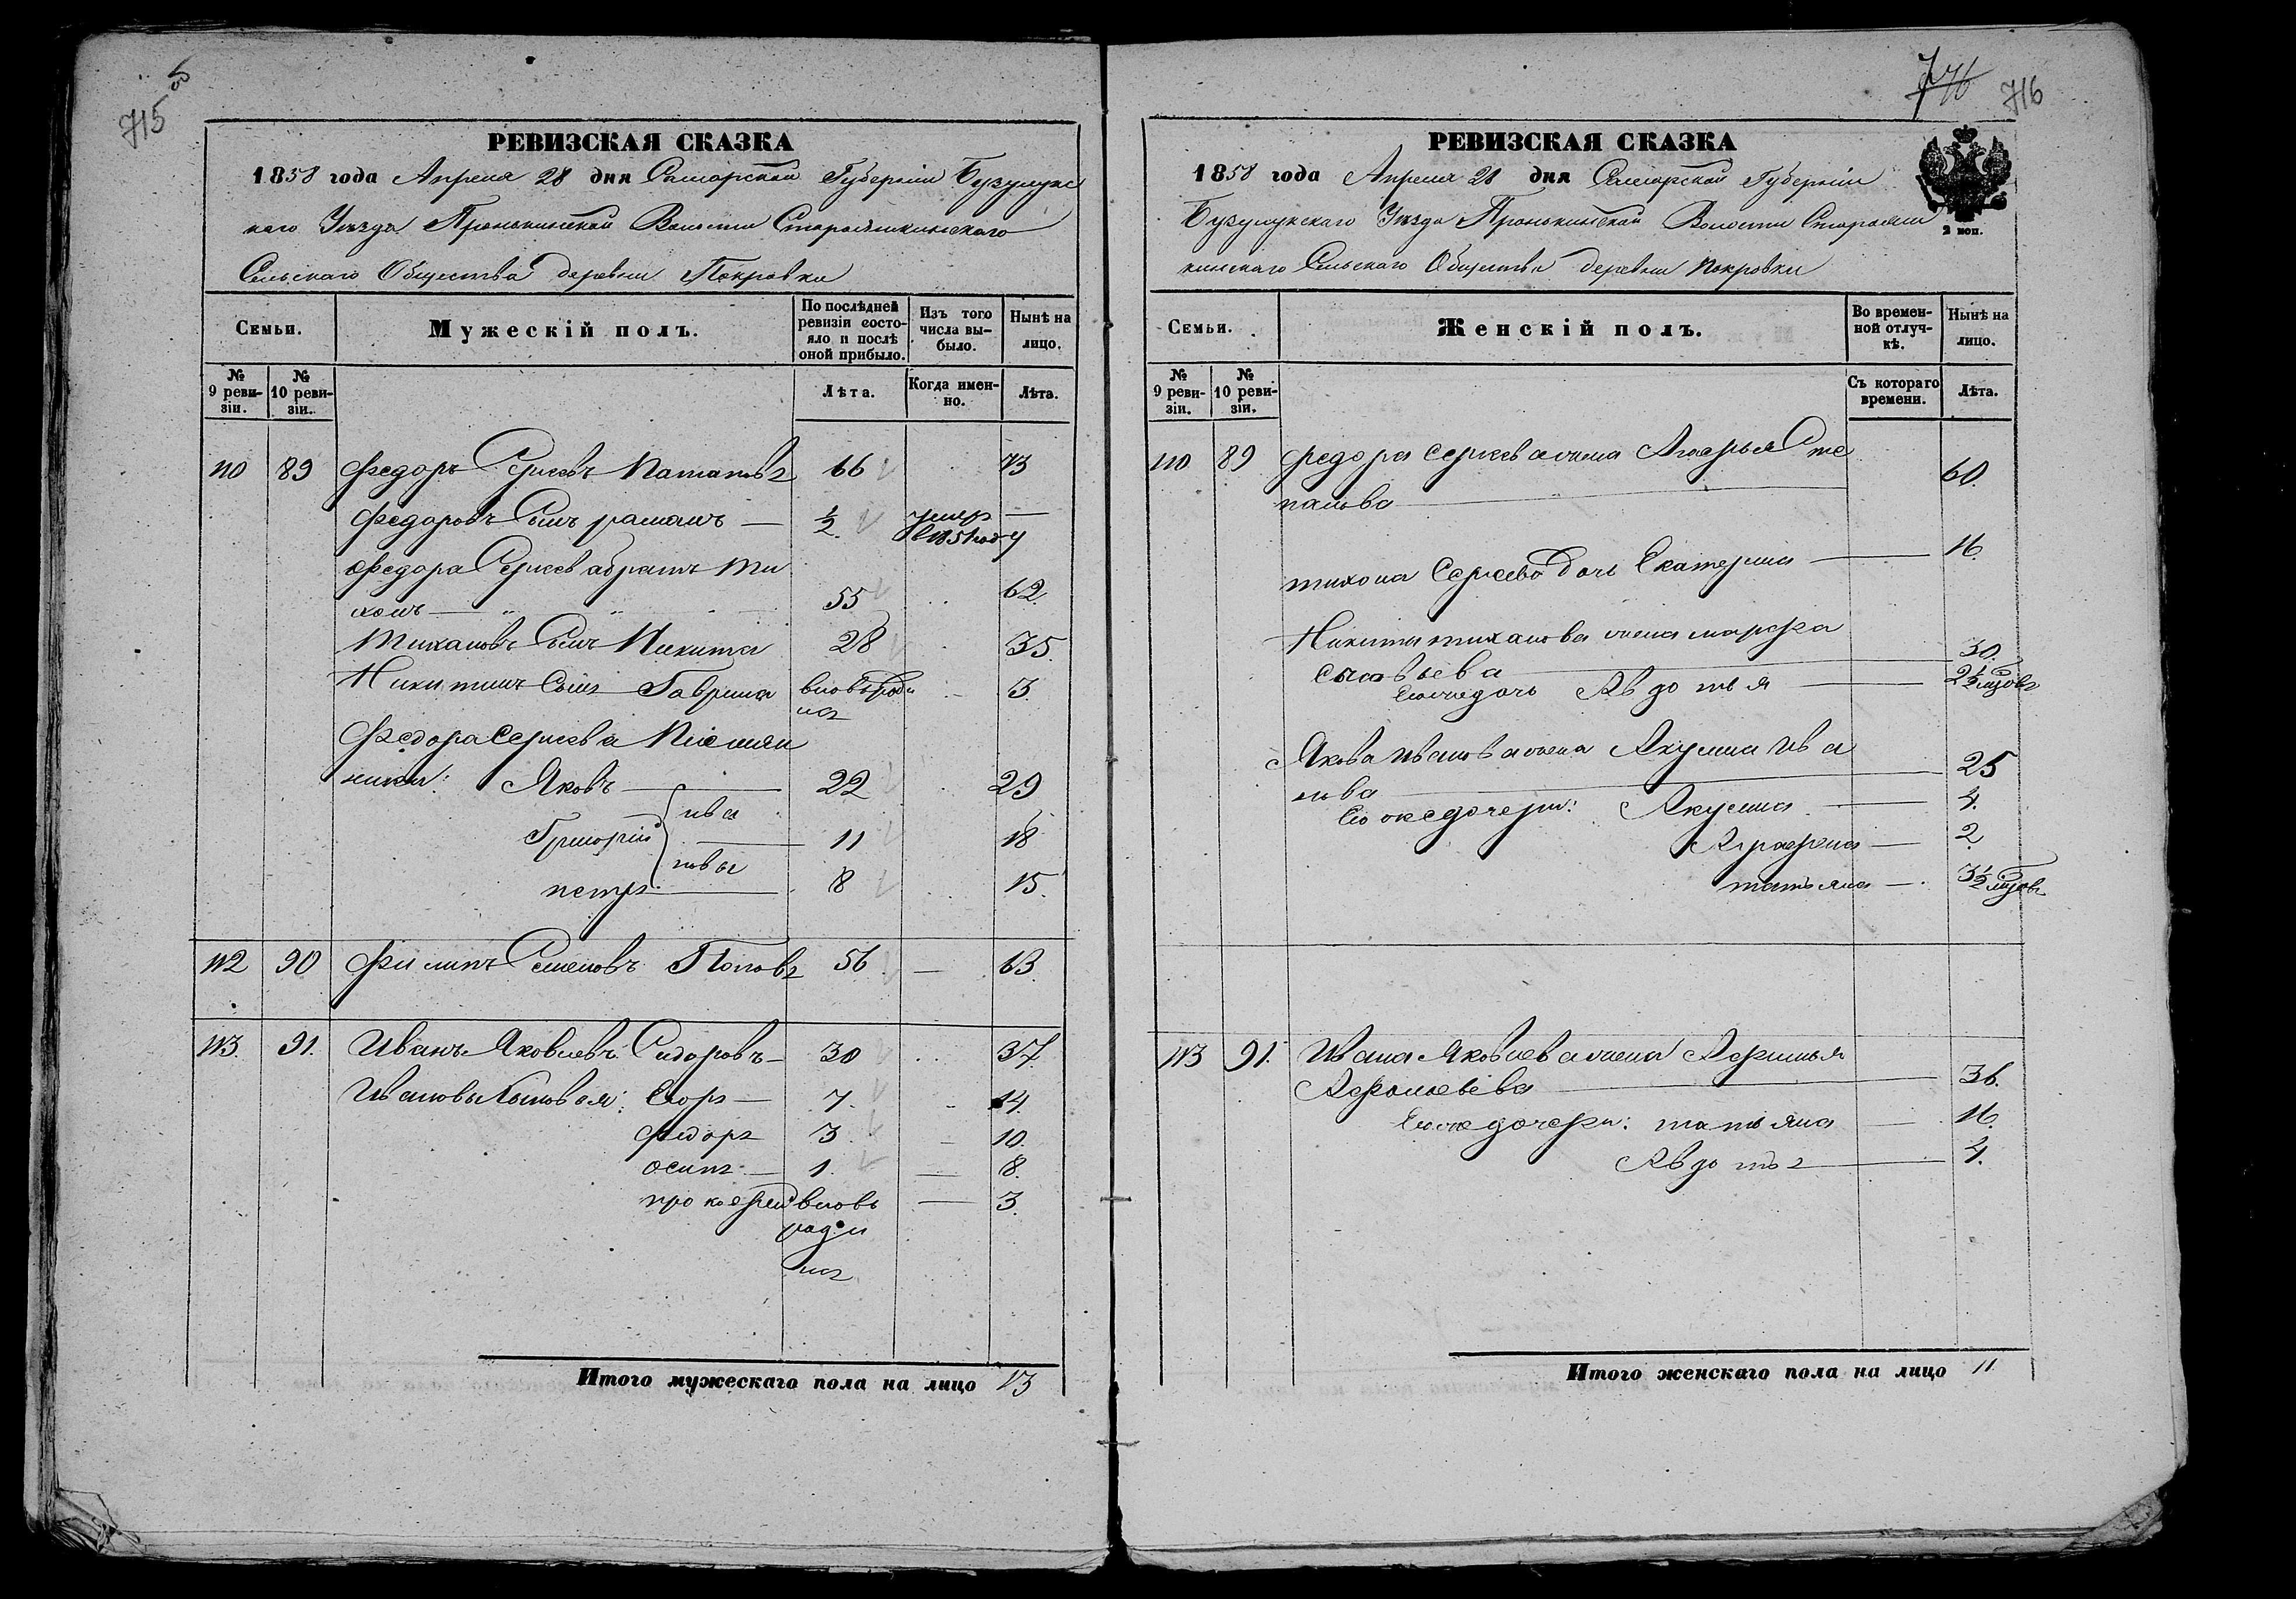 715
РЕВИЗСКАЯ СКАЗКА
1858 года Апреля 28 дня Самарской Губернiи Бузулукс
каго Уезда Пронькинской Волости Старояшкинскаго
Сельскаго Общества деревни Покровки
Семьи.
Мужескій полъ.
По послѣдней ревизіи состояло и послѣ оной прибыло.
Изъ того числа выбыло.
Нынѣ на лицо.
№ 9 ревизіи.
№ 10 ревизіи.
Лѣта.
Когда именно.
Лѣта.
110 89 Федоръ Сергеевъ Патаповъ 66 73
Федоровъ Сынъ раманъ — ½ умер в 1851 году —
Федора Сергеева братъ Ти
хонъ — 55 62
Тихановъ Сынъ Никита 28 35.
Никитинъ Сынъ Гаврила вновь роди нъ 3.
Федора Сергеева Племян
ники: Яковъ — 22 29
Григорій ива — 11 18
петръ новы — 8 15.
112 90 Филипъ Семеновъ Поповъ 56 — 63.
113. 91. Иванъ Яковлевъ Сидоровъ — 30 37.
Ивановы Сыновья: Егоръ — 7. 14.
Федоръ 3. — 10.
осипъ — 1. — 8.
прокофей вновь — 3.
роди
нъ
Итого мужескаго пола на лицо 13
716 716
РЕВИЗСКАЯ СКАЗКА
1858 года Апреля 28 дня Самарской Губернiи
Бузулукскаго Уезда Пронькинской Волости Старояш
кинскаго Сельскаго Общества деревни Покровки
2 коп.
Семьи.
Женскій полъ.
Во временной отлучкѣ.
Нынѣ на лицо.
№ 9 ревизіи.
№ 10 ревизіи.
Съ котораго времени.
Лѣта.
110 89 Федора Сергеева жена Агафья Сте
панова — 60.
тихона Сергеева дочь Екатерина — 16
Никиты тиханова жена марфа
30.
Его же дочь Авдотья — 2½
Якова Иванова жена Акулина Ива
нова — 25
Его же дочери: Акулина — 4.
Аграфена — 2
татьяна — 3½
113 91. Ивана Яковлева жена Афимья
— 36.
Его же дочери: татьяна — 16.
Авдотья — 4.
Итого женскаго пола на лицо 11